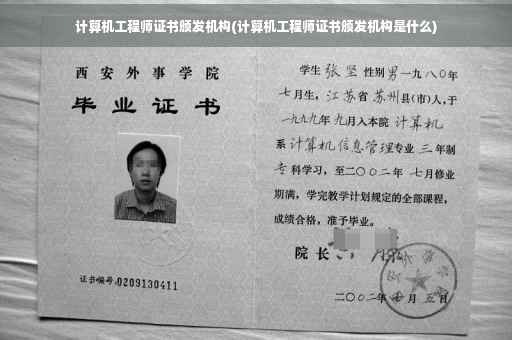 计算机工程师证书颁发机构(计算机工程师证书颁发机构是什么)
西安外事学院
毕业证书
证书编号:0209130411
学生张坚性别男一九八〇年
七月生,江苏省苏州县(市)人,于
一九九九年九月入本院计算机
系计算机信息管理专业三年制
专科学习,至二〇〇二年七月修业
期满,学完教学计划规定的全部课程,
成绩合格,准予毕业。
院长
二〇〇二年 月五日